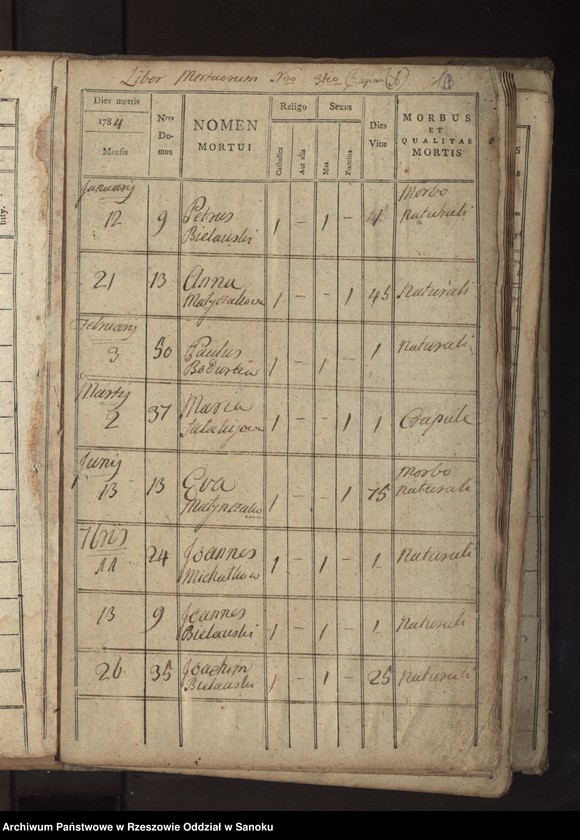 Liber Mortuorum Nro 3tio Pagina
Dies mortis
1784
Mensis
Nrus
Do-
mus
NOMEN
MORTUI
Religo
Catholica
Aut alia
Sexus
Mas
Femina
Dies
Vitæ
MORBUS
ET
QUALITAS
MORTIS
January
12 9 Petrus 1 – 1 – 4 Morbo
Bielauski naturali
21 13 Anna 1 – – 1 45 Naturali
February
3 50 Paulus 1 – 1 – 1 Naturali
Marty
2 37 Maria 1 – – 1 1
Juny
13 13 Eva 1 – – 1 75 Morbo
naturali
7bris
11 24 Joannes 1 – 1 – 1 Naturali
Michalkow
13 9 Joannes 1 – 1 – 1 Naturali
Bielauski
26 35 Joachim 1 – 1 – 25 Naturali
Bielauski
Archiwum Państwowe w Rzeszowie Oddział w Sanoku